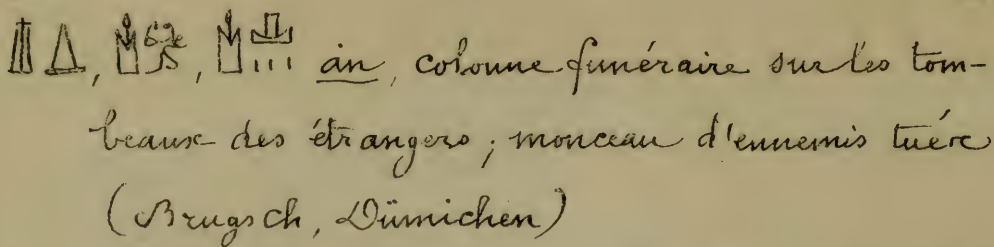 , , án, colonne funéraire sur les tom-
beaux des étrangers; monceau d'ennemis tués
(Brugsch, Dümichen)